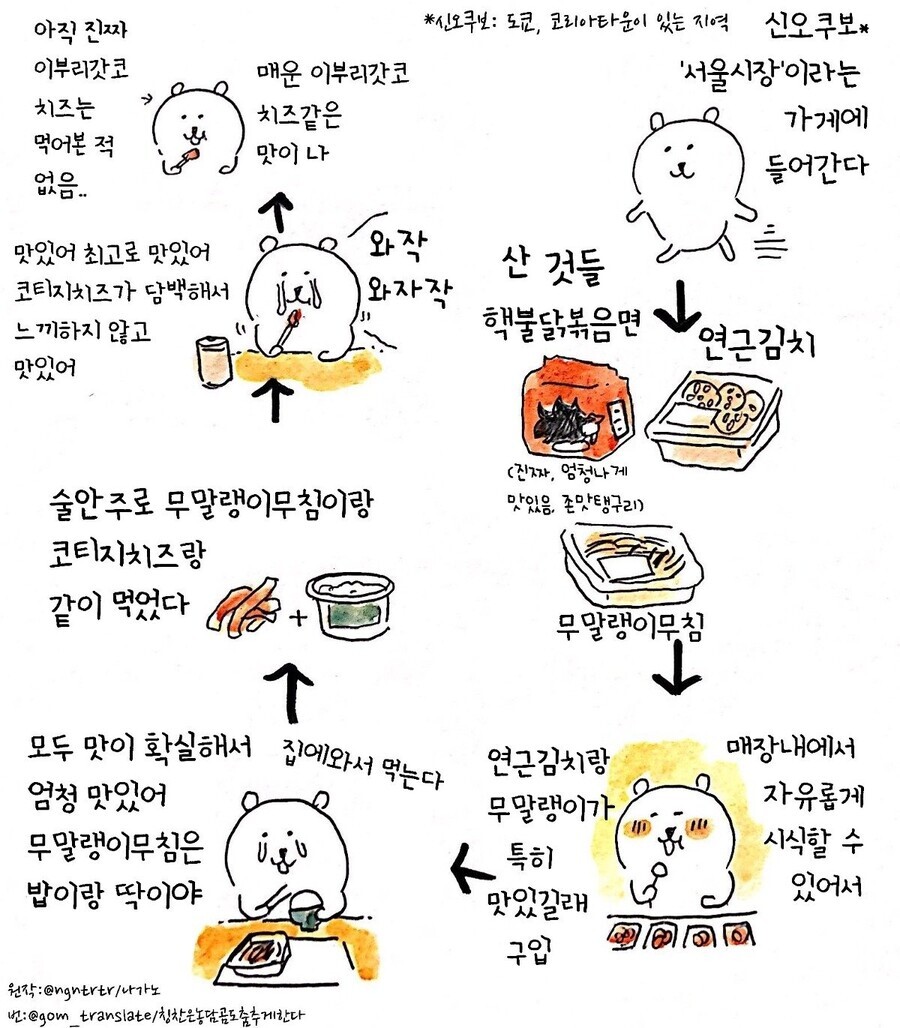 *신오쿠보: 도쿄, 코리아타운이 있는 지역
신오쿠보*
'서울시장'이라는
가게에
들어간다
산 것들
핵불닭볶음면
(진짜, 엄청나게
맛있음. 존맛탱구리)
연근김치
무말랭이무침
매장내에서
자유롭게
시식할 수
있어서
연근김치랑
무말랭이가
특히
맛있길래
구입
집에와서 먹는다
모두 맛이 확실해서
엄청 맛있어
무말랭이무침은
밥이랑 딱이야
술안주로 무말랭이무침이랑
코티지치즈랑
같이 먹었다
+
와작
와자작
맛있어 최고로 맛있어
코티지치즈가 담백해서
느끼하지 않고
맛있어
매운 이부리갓코
치즈같은
맛이 나
아직 진짜
이부리갓코
치즈는
먹어본 적
없음..
원작:@ngntrtr/나가노
번:@gom_translate/칭찬은농담곰도춤추게한다